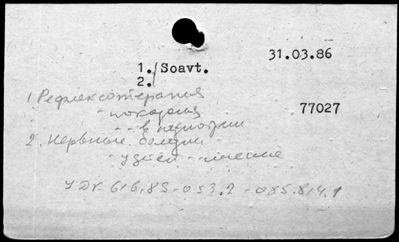 31.03.86
1./Soavt.
2./
77027
1 Рефлексотерапия
2. Нервные болезни
у детей - лечение
УДК 616.83-053.2-085.814.1